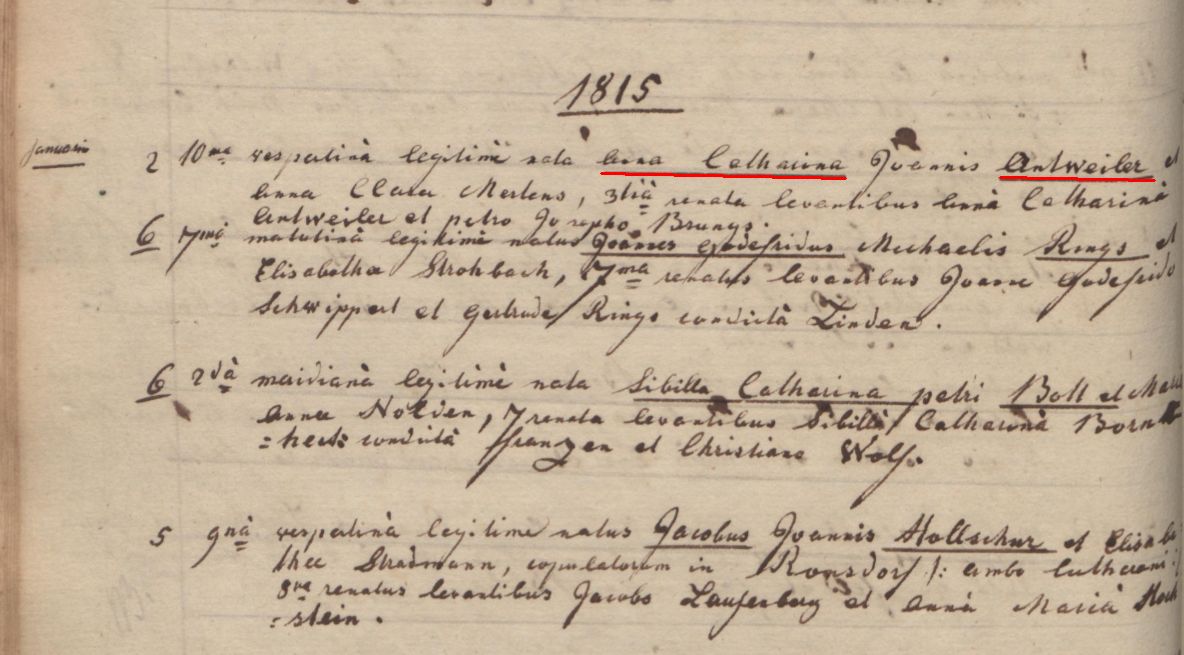 1815
Januarii
2 10ma vespertinâ legitimè nata Anna Catharina Joannis Antweiler et
Anna Clara Mertens, 3tiâ renata levantibus Annâ Catharinâ
Antweiler et petro Josepho Brungs.
6 7mâ matutinâ legitimè natus Joannes Godefridus Michaelis Rings et
Elisabetha Strohbach, 7ma renatus levantibus Joanne Godefrido
Schwippert et Gertrude Rings condictâ Linden.
6 2dâ meridianâ legitimè nata Sibilla Catharina petri Boll et Maria
Anna Nolden, 7 renata levantibus Sibillâ Catharinâ Born
=heck condictâ franzen et Christiano Wolf.
5 9nâ vespertinâ legitime natus Jacobus Joannis Hollschur et Elisabe
thee Stradmann, copulatorum in Ronsdorf /: ambo lutherani :/
8va renatus levantibus Jacobo Laufenberg et Annâ Mariâ
=stein.